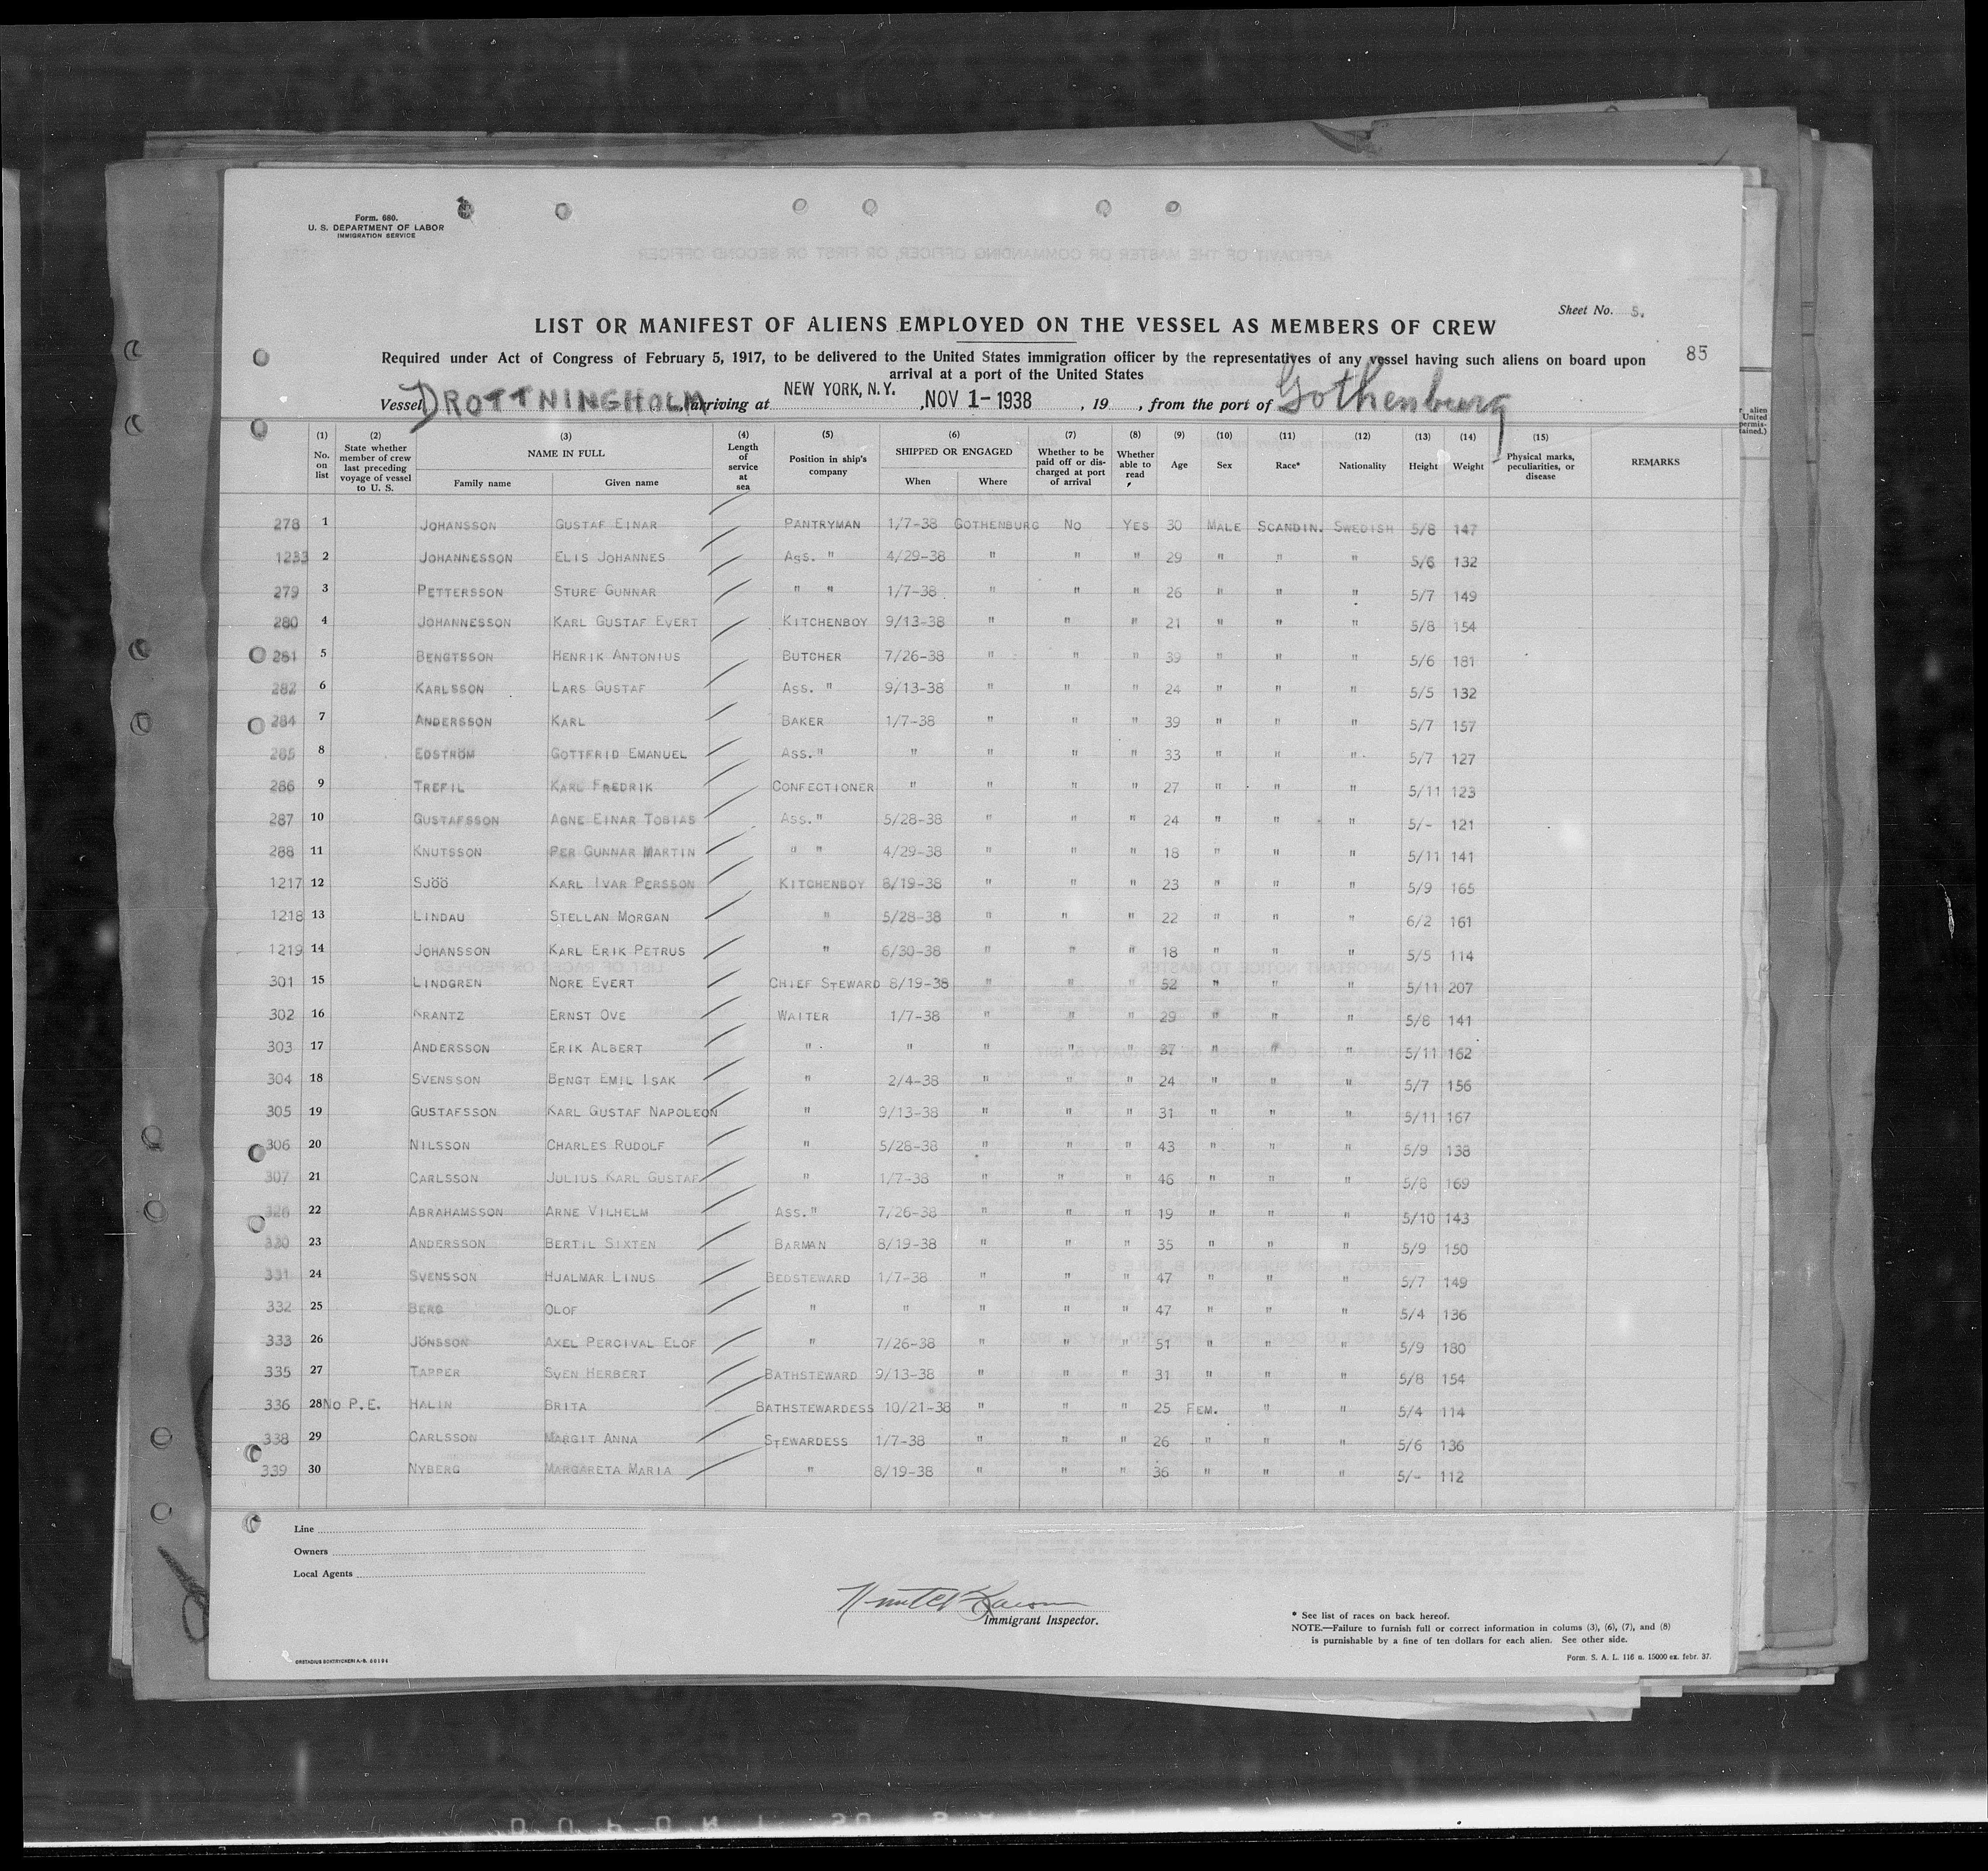 Form. 680.
U. S. DEPARTMENT OF LABOR
IMMIGRATION SERVICE
Sheet No. 5.
LIST OR MANIFEST OF ALIENS EMPLOYED ON THE VESSEL AS MEMBERS OF CREW
85
Required under Act of Congress of February 5, 1917, to be delivered to the United States immigration officer by the representatives of any vessel having such aliens on board upon
arrival at a port of the United States
Vessel DROTTNINGHOLM, arriving at NEW YORK, N.Y. , NOV 1- 1938 , 19 , from the port of Gothenburg
(1) (2) (3) (4) (5) (6) (7) (8) (9) (10) (11) (12) (13) (14) (15)
No. on list State whether member of crew last preceding voyage of vessel to U. S. NAME IN FULL Length of service at sea Position in ship's company SHIPPED OR ENGAGED Whether to be paid off or discharged at port of arrival Whether able to read Age Sex Race* Nationality Height Weight Physical marks, peculiarities, or disease REMARKS
Family name Given name When Where
278 1 JOHANSSON GUSTAF EINAR PANTRYMAN 1/7-38 GOTHENBURG NO YES 30 MALE SCANDIN. SWEDISH 5/8 147
1233 2 JOHANNESSON ELIS JOHANNES ASS. " 4/29-38 " " " 29 " " " 5/6 132
279 3 PETTERSSON STURE GUNNAR " " 1/7-38 " " " 26 " " " 5/7 149
280 4 JOHANNESSON KARL GUSTAF EVERT KITCHENBOY 9/13-38 " " " 21 " " " 5/8 154
281 5 BENGTSSON HENRIK ANTONIUS BUTCHER 7/26-38 " " " 39 " " " 5/6 181
282 6 KARLSSON LARS GUSTAF ASS. " 9/13-38 " " " 24 " " " 5/5 132
284 7 ANDERSSON KARL BAKER 1/7-38 " " " 39 " " " 5/7 157
285 8 EDSTRÖM GOTTFRID EMANUEL ASS. " " " " " 33 " " " 5/7 127
286 9 TREFIL KARL FREDRIK CONFECTIONER " " " " 27 " " " 5/11 123
287 10 GUSTAFSSON AGNE EINAR TOBIAS ASS. " 5/28-38 " " " 24 " " " 5/- 121
288 11 KNUTSSON PER GUNNAR MARTIN " " 4/29-38 " " " 18 " " " 5/11 141
1217 12 SJÖÖ KARL IVAR PERSSON KITCHENBOY 8/19-38 " " " 23 " " " 5/9 165
1218 13 LINDAU STELLAN MORGAN " 5/28-38 " " " 22 " " " 6/2 161
1219 14 JOHANSSON KARL ERIK PETRUS " 6/30-38 " " " 18 " " " 5/5 114
301 15 LINDGREN NORE EVERT CHIEF STEWARD 8/19-38 " " " 52 " " " 5/11 207
302 16 KRANTZ ERNST OVE WAITER 1/7-38 " " " 29 " " " 5/8 141
303 17 ANDERSSON ERIK ALBERT " " " " " 37 " " " 5/11 162
304 18 SVENSSON BENGT EMIL ISAK " 2/4-38 " " " 24 " " " 5/7 156
305 19 GUSTAFSSON KARL GUSTAF NAPOLEON " 9/13-38 " " " 31 " " " 5/11 167
306 20 NILSSON CHARLES RUDOLF " 5/28-38 " " " 43 " " " 5/9 138
307 21 CARLSSON JULIUS KARL GUSTAF " 1/7-38 " " " 46 " " " 5/8 169
326 22 ABRAHAMSSON ARNE VILHELM ASS. " 7/26-38 " " " 19 " " " 5/10 143
330 23 ANDERSSON BERTIL SIXTEN BARMAN 8/19-38 " " " 35 " " " 5/9 150
331 24 SVENSSON HJALMAR LINUS BEDSTEWARD 1/7-38 " " " 47 " " " 5/7 149
332 25 BERG OLOF " " " " " 47 " " " 5/4 136
333 26 JÖNSSON AXEL PERCIVAL ELOF " 7/26-38 " " " 51 " " " 5/9 180
335 27 TAPPER SVEN HERBERT BATHSTEWARD 9/13-38 " " " 31 " " " 5/8 154
336 28 NO P.E. HALIN BRITA BATHSTEWARDESS 10/21-38 " " " 25 FEM. " " 5/4 114
338 29 CARLSSON MARGIT ANNA STEWARDESS 1/7-38 " " " 26 " " " 5/6 136
339 30 NYBERG MARGARETA MARIA " 8/19-38 " " " 36 " " " 5/- 112
Line
Owners
Local Agents
Immigrant Inspector.
* See list of races on back hereof.
NOTE.—Failure to furnish full or correct information in colums (3), (6), (7), and (8)
is punishable by a fine of ten dollars for each alien. See other side.
Form. S. A. L. 116 n. 15000 ex. febr. 37.